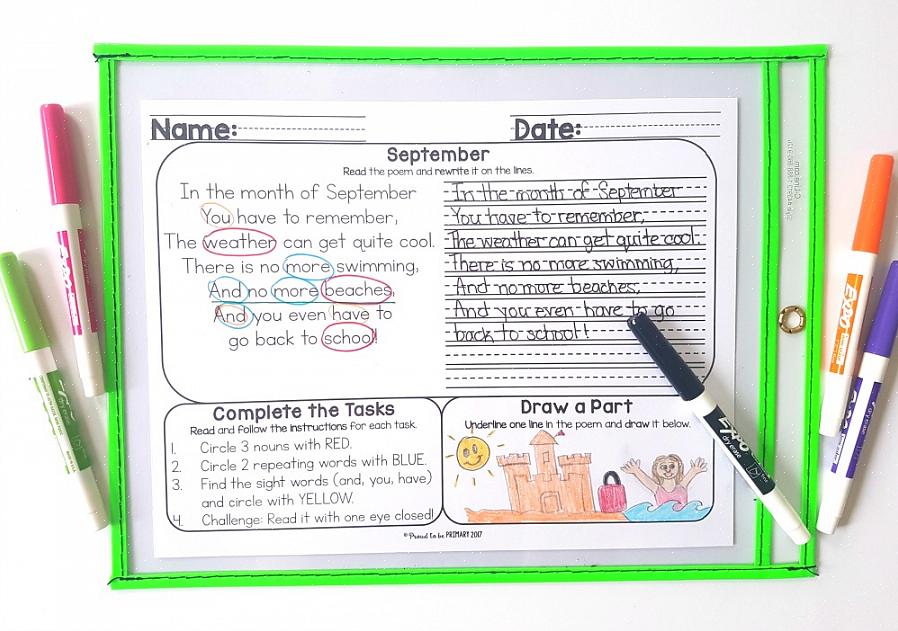 Name:
Date:
September
Read the poem and rewrite it on the lines.
In the month of September
You have to remember,
The weather can get quite cool.
There is no more swimming,
And no more beaches,
And you even have to
go back to school!
In the month of September
You have to remember,
The weather can get quite cool.
There is no more swimming,
And no more beaches,
And you even have to go
back to school!
Complete the Tasks
Read and follow the instructions for each task.
1. Circle 3 nouns with RED.
2. Circle 2 repeating words with BLUE.
3. Find the sight words (and, you, have)
and circle with YELLOW.
4. Challenge: Read it with one eye closed!
Draw a Part
Underline one line in the poem and draw it below.
© Proud to be PRIMARY 2017
EXPO
dry erase
fine
EXPO
EXPO